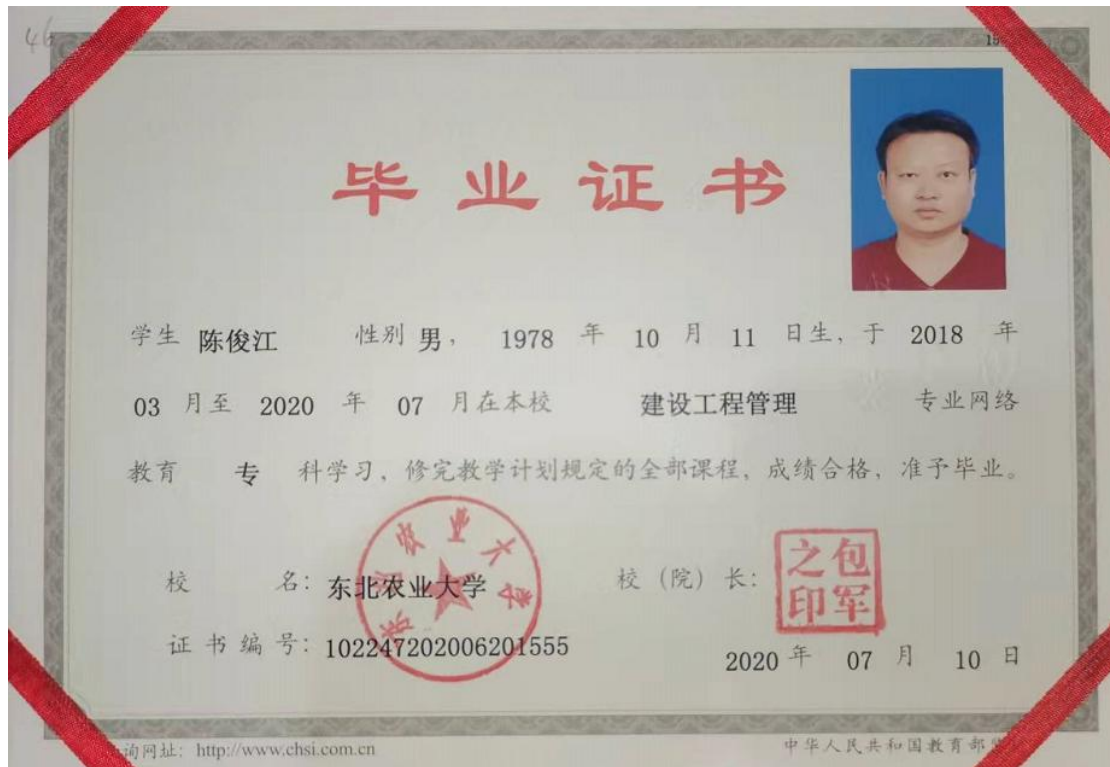 46
15
毕业证书
学生 陈俊江 性别 男, 1978 年 10 月 11 日生, 于 2018 年
03 月至 2020 年 07 月在本校 建设工程管理 专业网络
教育 专 科学习, 修完教学计划规定的全部课程, 成绩合格, 准予毕业。
校 名: 东北农业大学 校（院）长: 包军之印
东北农业大学
证书编号: 102247202006201555
2020 年 07 月 10 日
询网址: http://www.chsi.com.cn 中华人民共和国教育部